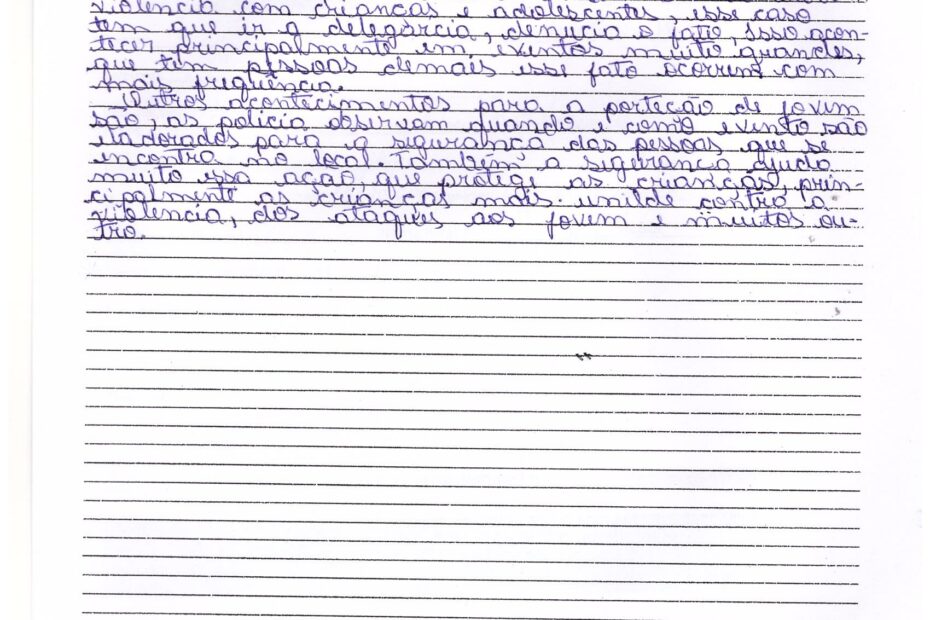 violencia com crianças e adolescentes, esse caso
tem que ir a delegarcia, denucia o fato, Isso acon-
tecer principalmente em, eventos muito grandes,
que tem pessoas demais esse fato ocorrem com
mais frequência.
Outros acontecimentos para a porteção de jovem
são, as policia observam quando e como evento são
elaborados para a sigurança das pessoas que se
encontra no local. Também a sigurança ajuda
muito essa ação, que protege as crianças, prin-
cipalmente as crianças mais. contro a
violencia, dos ataques aos jovem e muitos ou-
tro.